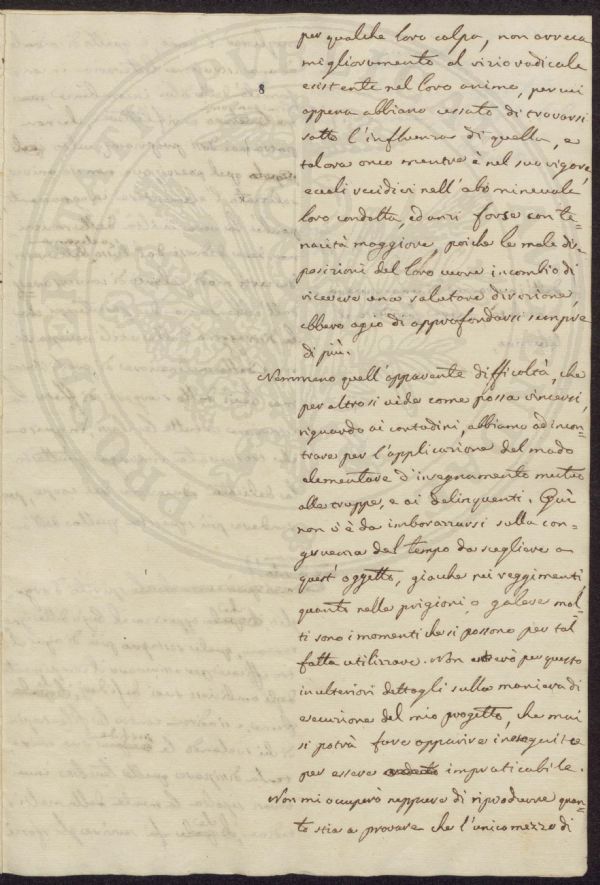 per qualche loro colpa, non arreca
miglioramento al vizio radicale
8
esistente nel loro animo, per cui
appena abbiano cessato di trovarsi
sotto l'influenza di quella, e
talora anco mentre è nel suo vigore,
eccoli recidivi nell'abominevole
loro condotta, ed anzi forse con te=
nacità maggiore, poiche le male dis=
posizioni del loro cuore incambio di
ricevere una salutare direzione,
ebbero agio di approfondarsi sempre
di più.
Nemmeno quell'apparente difficoltà, che
per altro si vide come possa vincersi,
riguardo ai contadini, abbiamo ad incon=
trare per l'applicazione del modo
elementare d'insegnamento mutuo
alle truppe, e ai delinquenti. Quì
non v'è da imbarazzarsi sulla con=
gruenza del tempo da scegliere a
quest'oggetto, giacche nei reggimenti
quanto nelle prigioni o galere mol=
ti sono i momenti che si possono per tal
fatta utilizzare. Non entrerò per questo
in ulteriori dettagli sulla maniera di
esecuzione del mio progetto, che mai
si potrà fare apparire ineseguito
per essere impraticabile.
Non mi occuperò neppure di riprodurre quan=
to stia a provare che l'unico mezzo di